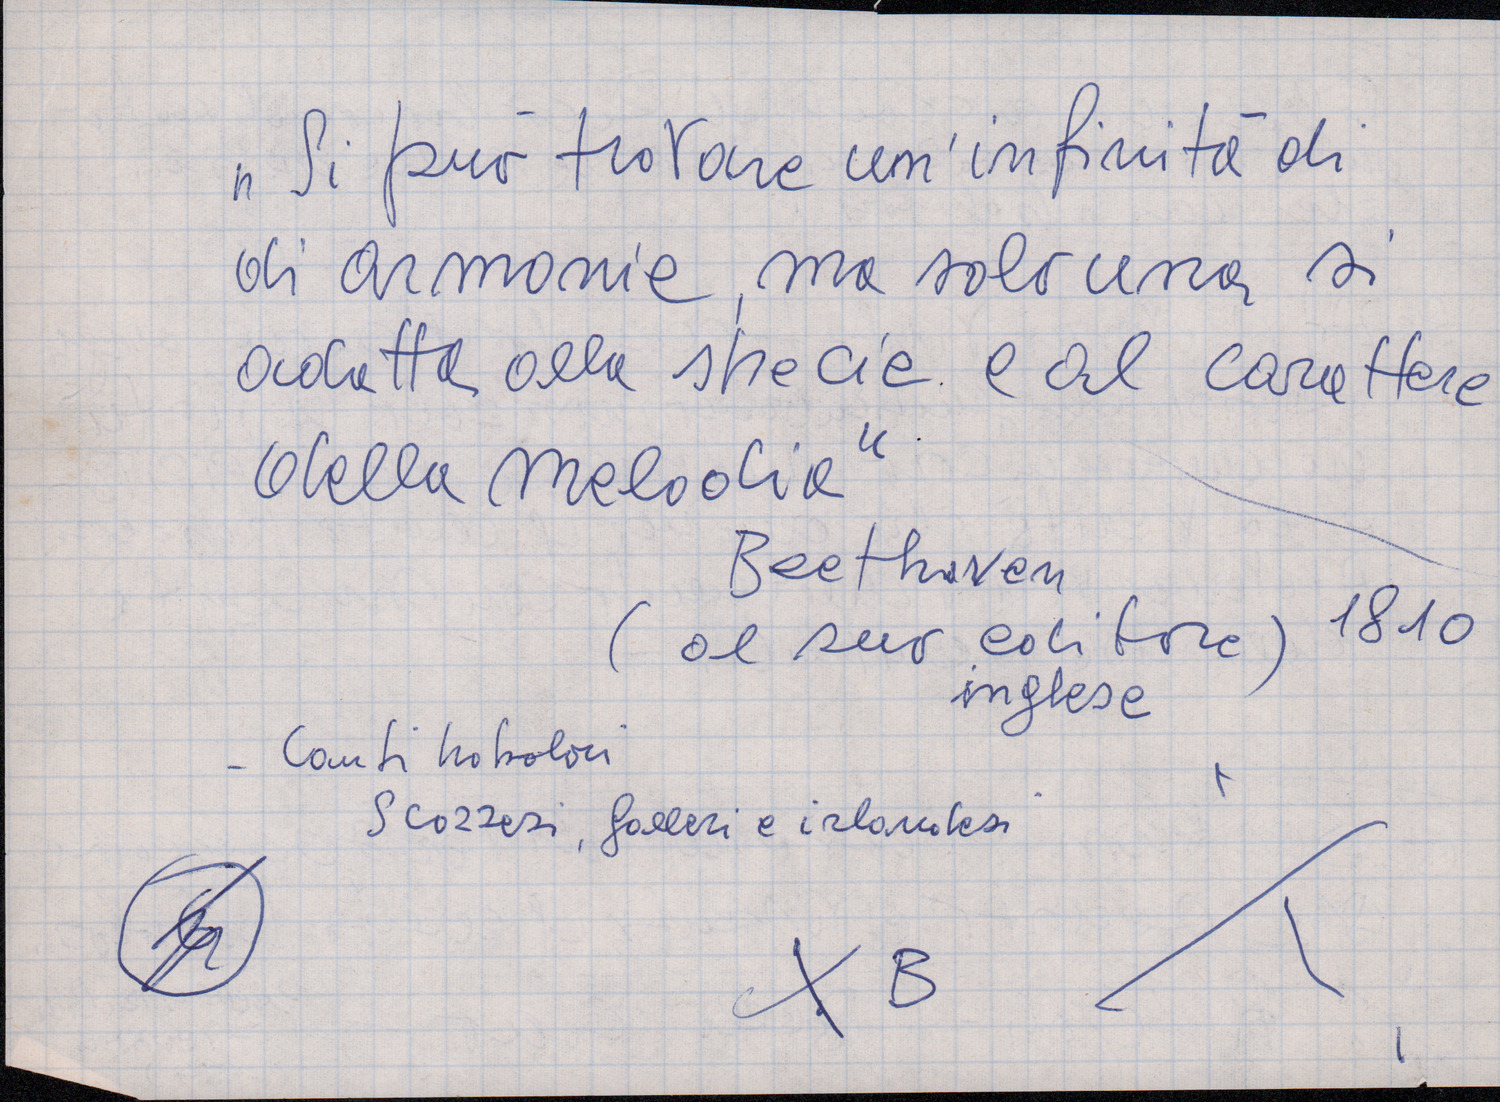 „Si può trovare un'infinità di
di armonie, ma solo una si
adatta alla specie e al carattere
della melodia“.
Beethoven
(al suo editore) 1810
inglese
- Canti popolari
Scozzesi, gallesi e irlandesi
X B